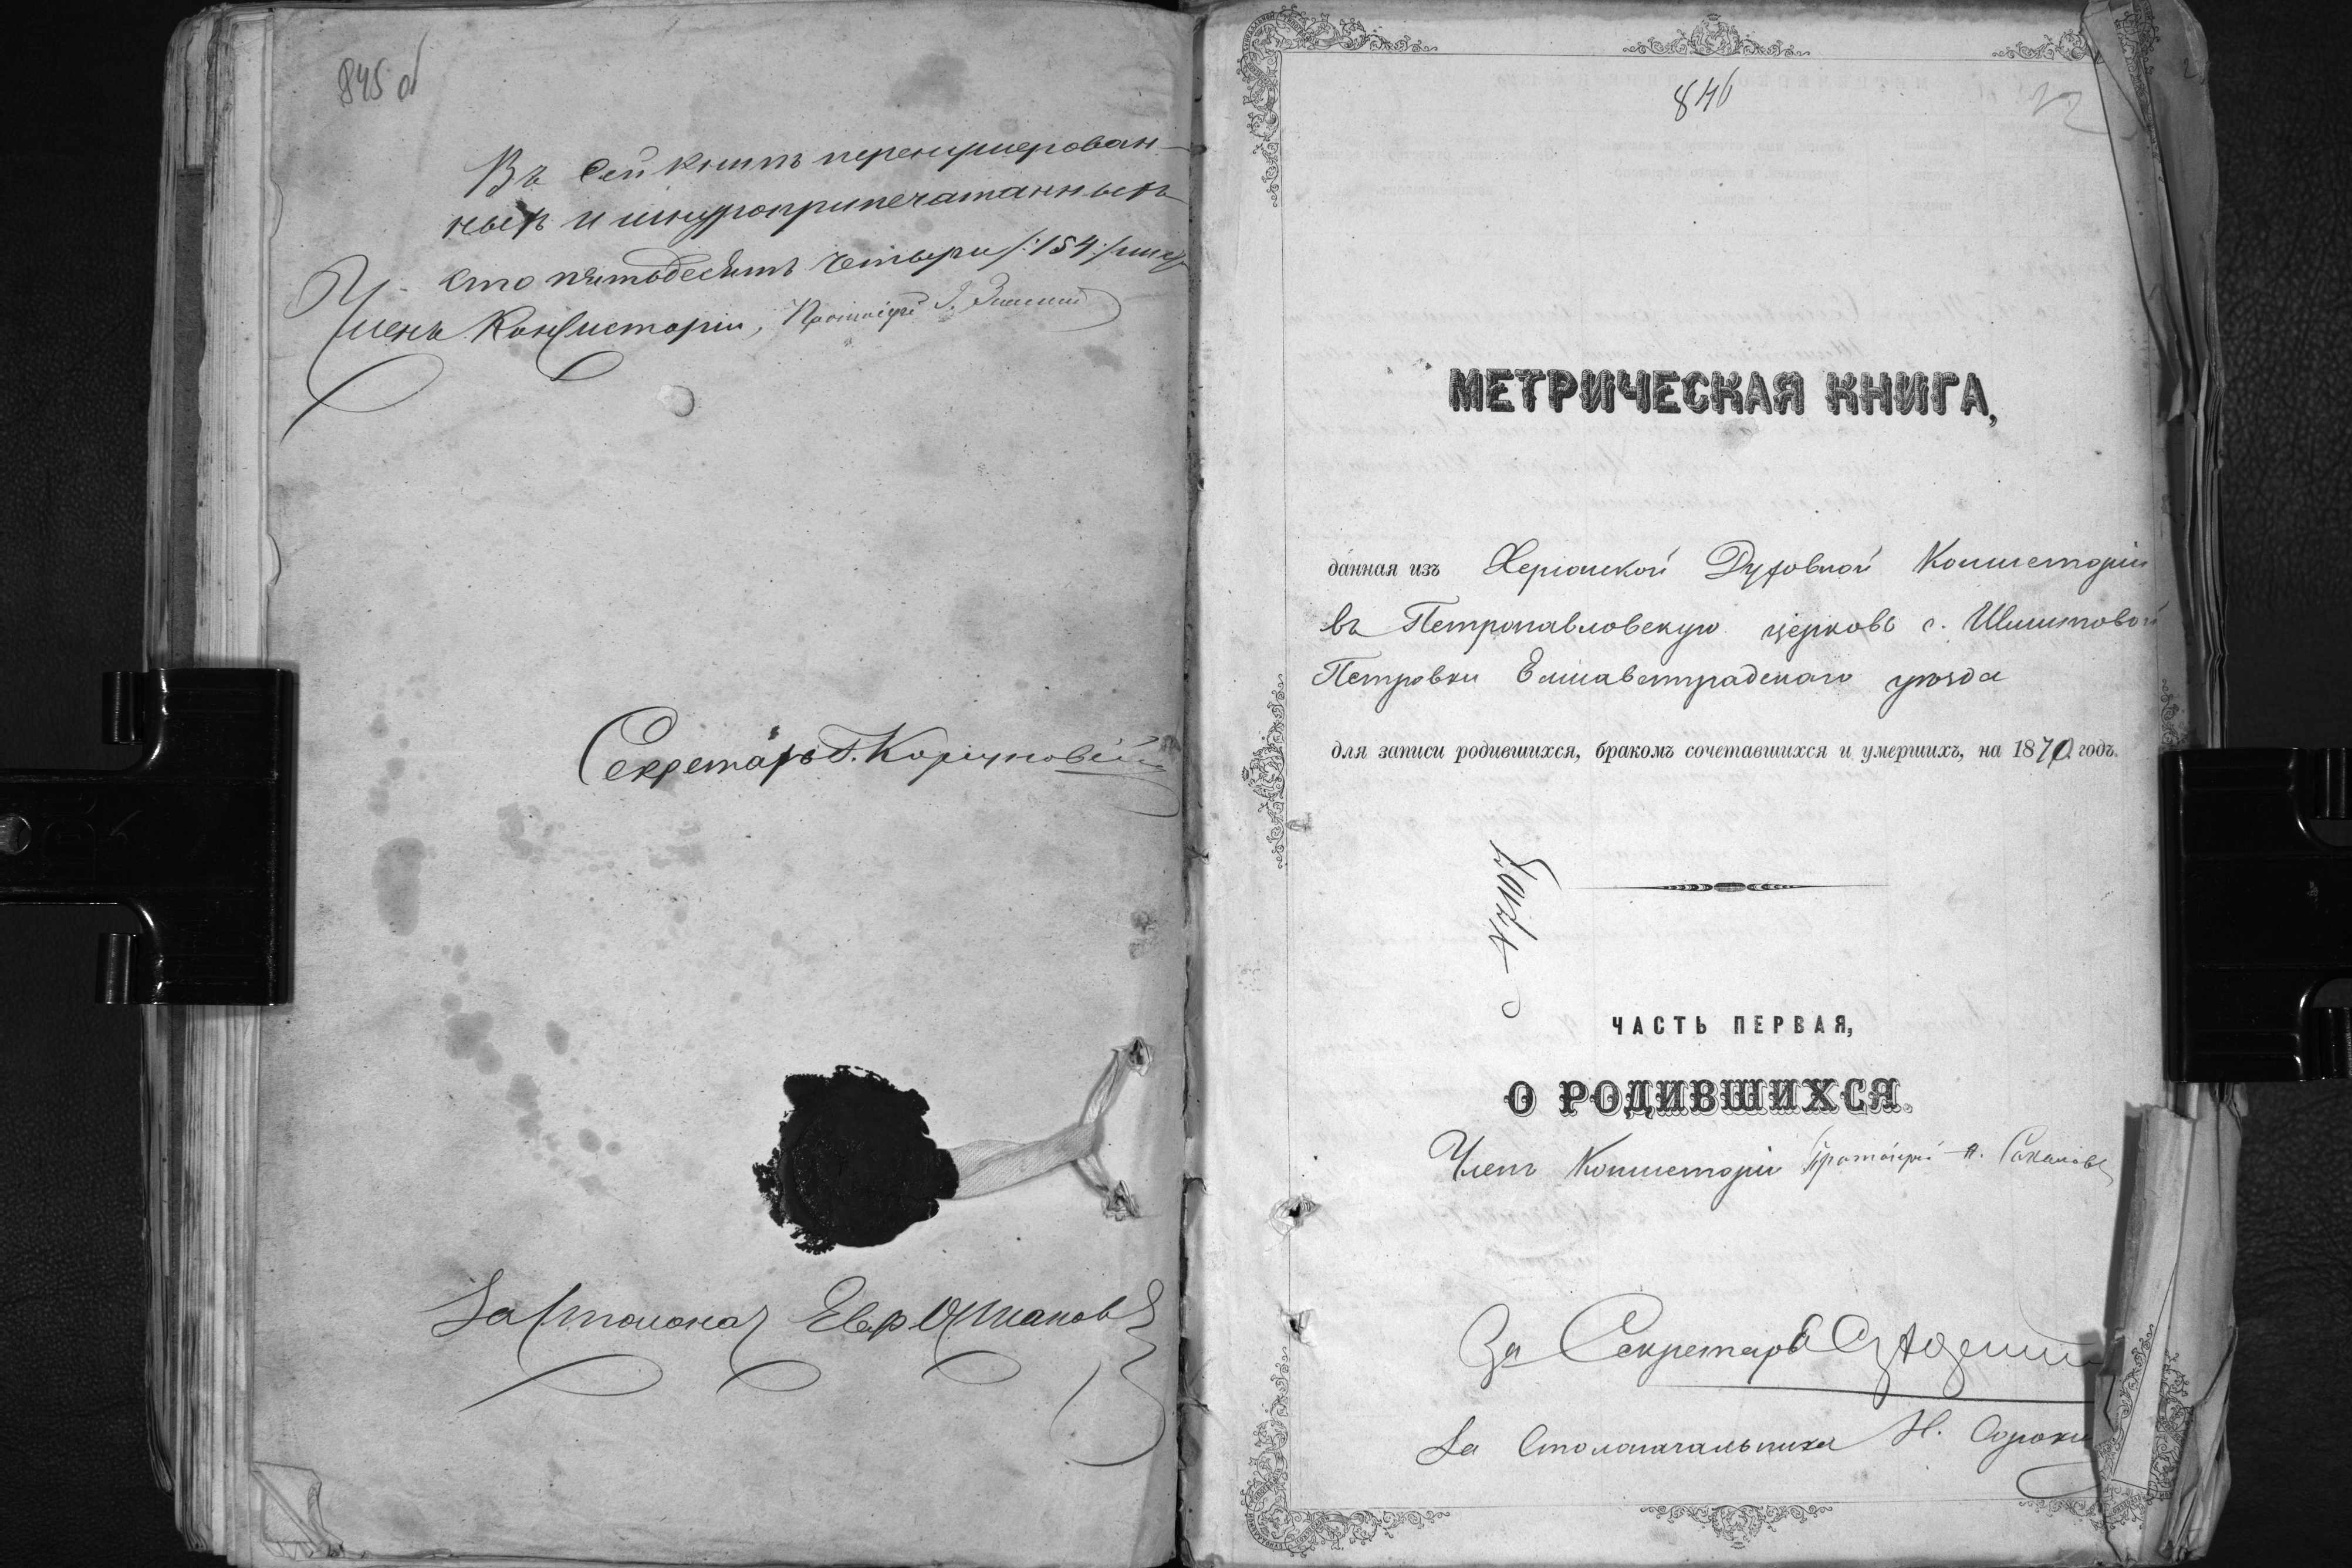 845 об
Въ сей книгѣ перенумерован-
ныхъ и шнуроприпечатанныхъ
сто пятьдесятъ четыре /:154:/
Членъ Консисторіи, Протоіерей
Секретарь
За Столонач
846
МЕТРИЧЕСКАЯ КНИГА,
данная изъ Херсонской Духовной Консисторіи
въ Петропавловскую церковь с. Шмитовой
Петровки Елисаветградскаго уѣзда
для записи родившихся, бракомъ сочетавшихся и умершихъ, на 1870 годъ.
ЧАСТЬ ПЕРВАЯ,
О РОДИВШИХСЯ.
Членъ Консисторіи Протоіерей А. Соколовъ
За Секретаря
За Столоначальника Н.